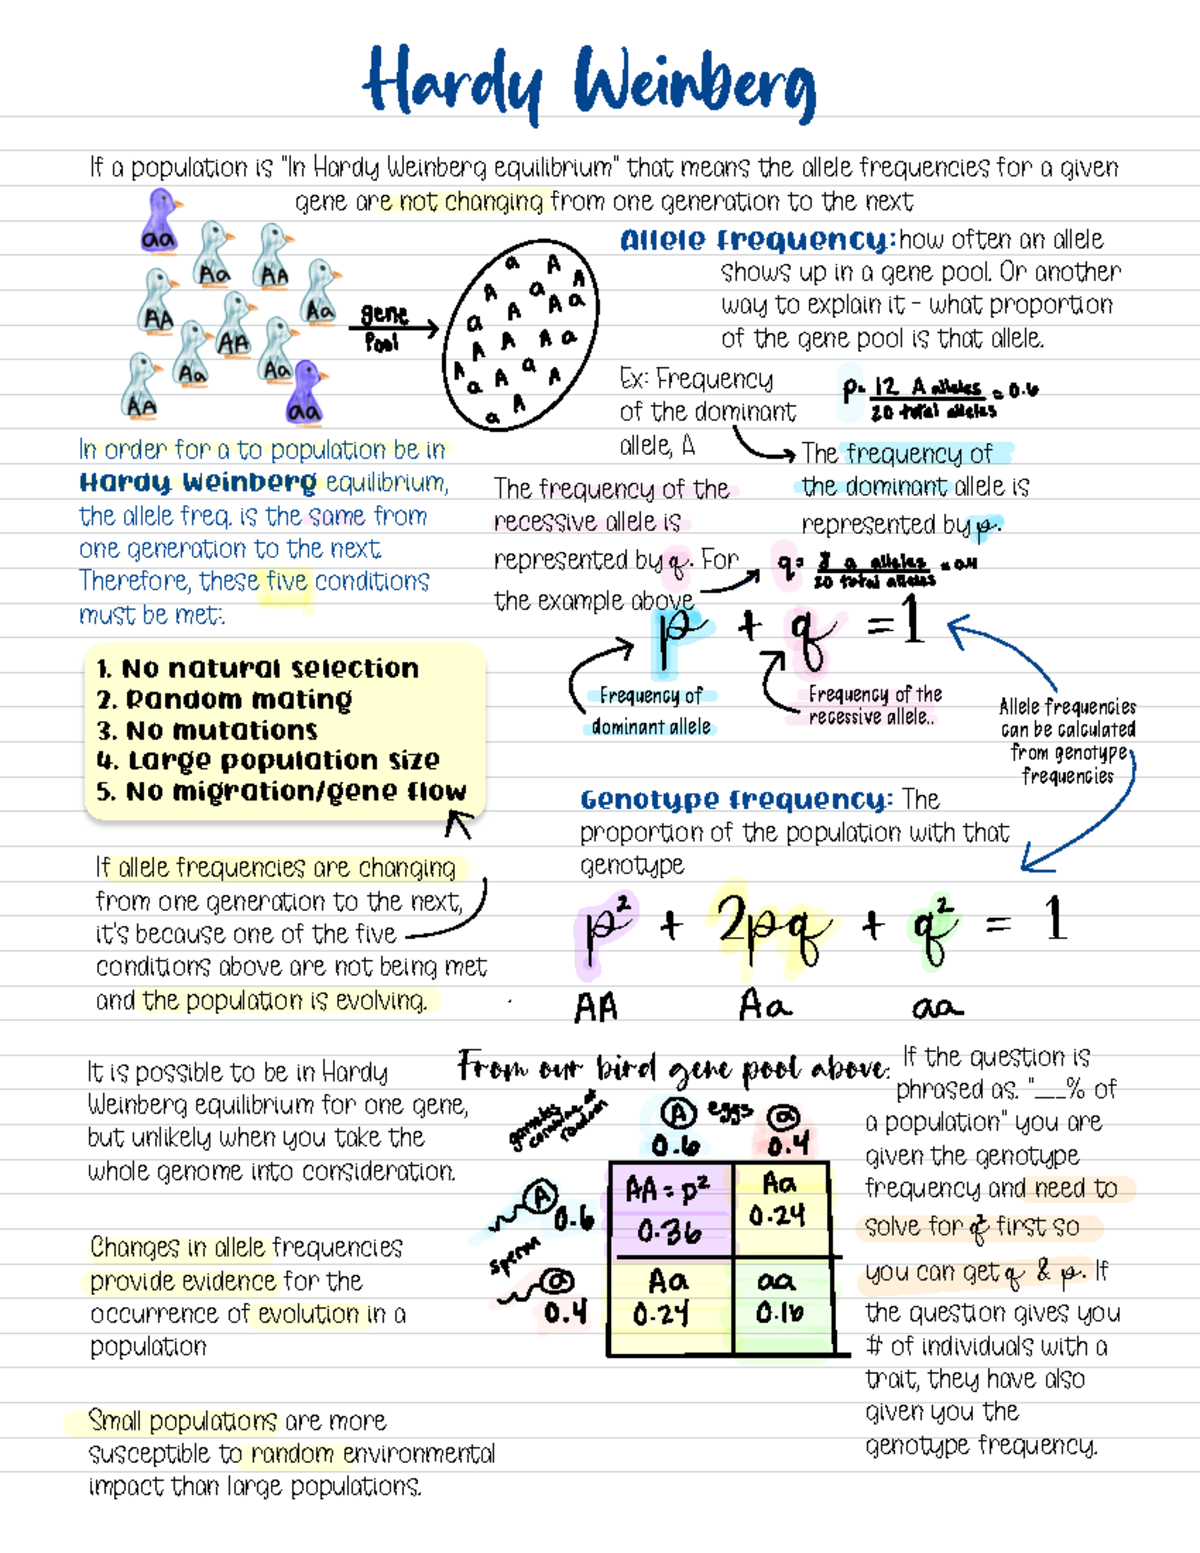 Hardy Weinberg
If a population is "In Hardy Weinberg equilibrium" that means the allele frequencies for a given
gene are not changing from one generation to the next
aa
Aa
AA
AA
Aa
AA
Aa
Aa
AA
aa
gene
Pool
a A
A a A
a A A a
A A A a
A a A a A
a A
Allele Frequency: how often an allele
shows up in a gene pool. Or another
way to explain it - what proportion
of the gene pool is that allele.
Ex: Frequency
of the dominant
allele, A
p= 12 A alleles = 0.6
20 total alleles
The frequency of
the dominant allele is
represented by p.
In order for a to population be in
Hardy Weinberg equilibrium,
the allele freq. is the same from
one generation to the next
Therefore, these five conditions
must be met:.
The frequency of the
recessive allele is
represented by q. For
the example above
q= 8 a alleles = 0.4
20 total alleles
p + q = 1
Frequency of
dominant allele
Frequency of the
recessive allele..
Allele frequencies
can be calculated
from genotype
frequencies
1. No natural selection
2. Random mating
3. No mutations
4. Large population size
5. No migration/gene flow
Genotype Frequency: The
proportion of the population with that
genotype
If allele frequencies are changing
from one generation to the next,
it's because one of the five
conditions above are not being met
and the population is evolving.
p² + 2pq + q² = 1
AA Aa aa
It is possible to be in Hardy
Weinberg equilibrium for one gene,
but unlikely when you take the
whole genome into consideration.
Changes in allele frequencies
provide evidence for the
occurrence of evolution in a
population
Small populations are more
susceptible to random environmental
impact than large populations.
From our bird gene pool above:
gametes
combine at
random
A eggs a
0.6 0.4
A
0.6
sperm
a
0.4
AA = p²
0.36
Aa
0.24
Aa
0.24
aa
0.16
If the question is
phrased as. "___% of
a population" you are
given the genotype
frequency and need to
solve for q² first so
you can get q & p. If
the question gives you
# of individuals with a
trait, they have also
given you the
genotype frequency.